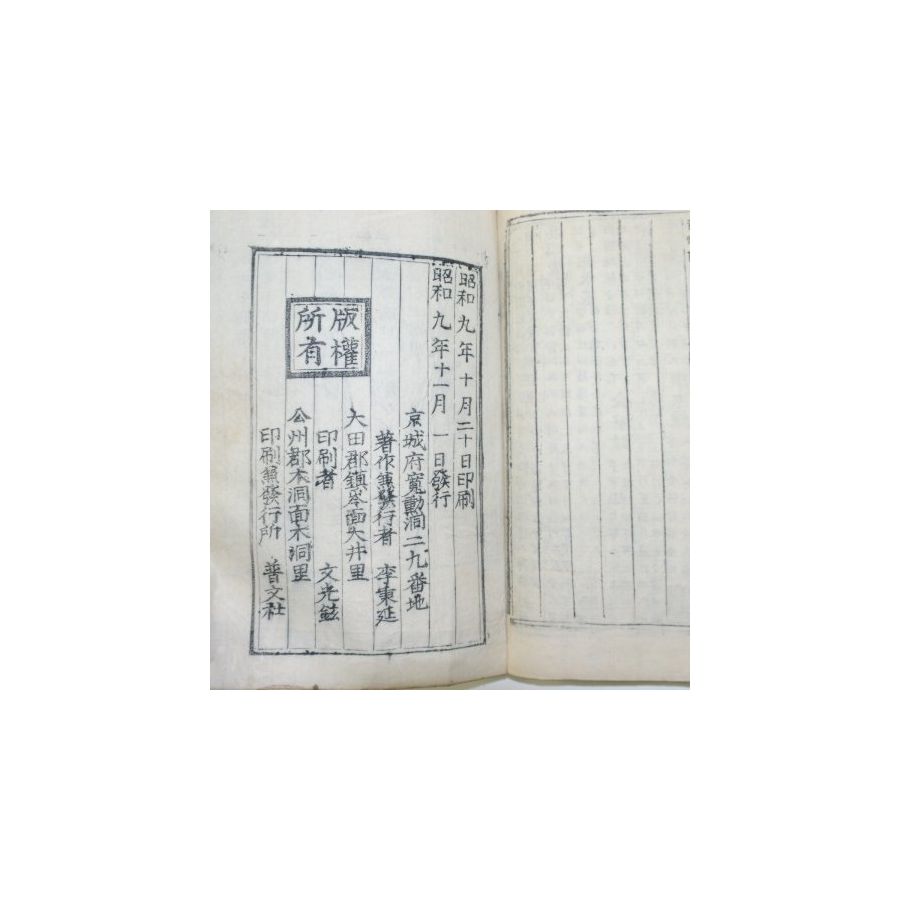 昭和九年十月二十日印刷
昭和九年十一月一日發行
京城府寬勳洞二九番地
著作兼發行者 李秉延
大田郡鎮岑面大井里
印刷者 文光鉉
公州郡木洞面木洞里
印刷兼發行所 普文社
版權
所有